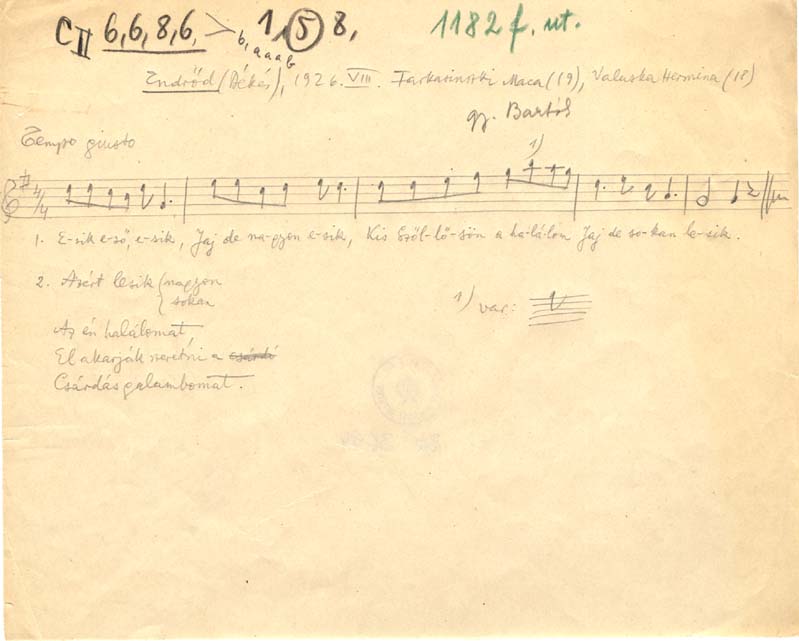 C II 6, 6, 8, 6, > 1, (5) 8, 1182 f. ut.
b, a a a b
Endrőd (Békés), 1926. VIII. Farkasinszki Maca (19), Valuska Hermina (18)
gy. Bartók
Tempo giusto
1)
4/4
1. E-sik e-ső, e-sik, Jaj de na-gyon e-sik, Kis Szől-lő-sön a ha-lá-lom Jaj de so-kan le-sik.
2. Azért lesik { nagyon
{ sokan
1) var:
Az én halálomat
El akarják veretni a csárdá
Csárdás galambomat.